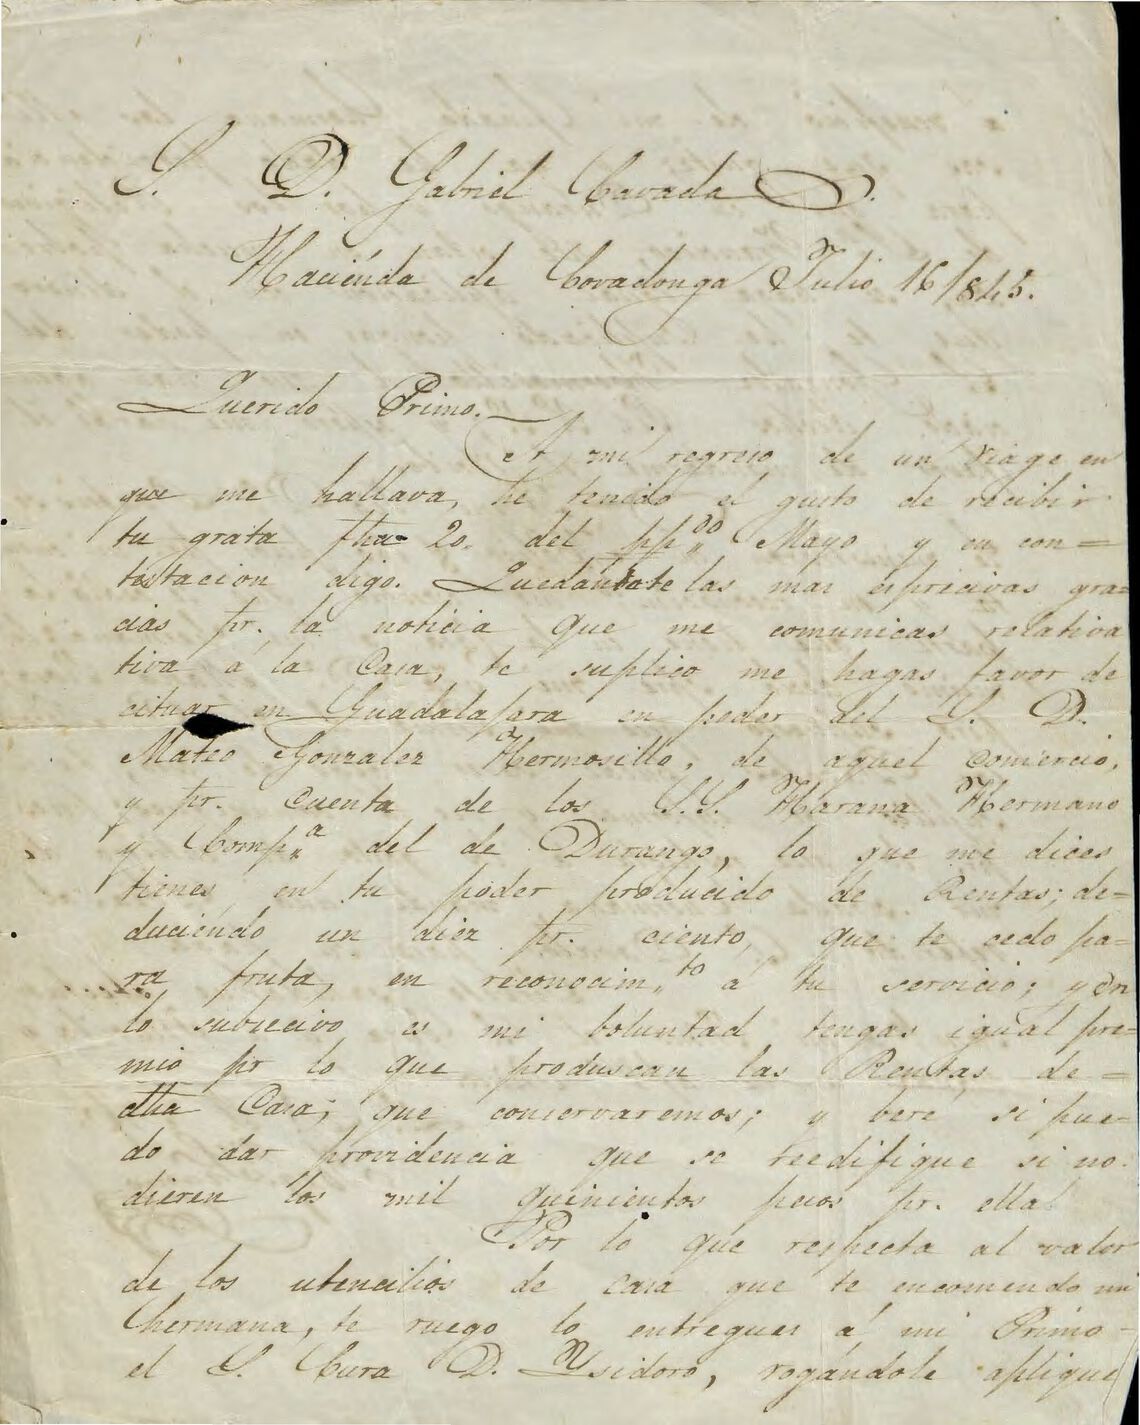 S. D. Gabriel Cavada.
Haciénda de Covadonga Julio 16/845.
Querido Primo.
A mi regreso de un viage en
que me hallava, he tenido el gusto de recibir
tu grata fha 20. del pp„do Mayo y en con=
testacion digo. Quedandote las mas espricivas gra=
cias pr. la noticia que me comunicas relativa
tiva á la Casa, te suplico me hagas favor de
cituar en Guadalajara en poder del S. D.
Mateo Gonzalez Hermosillo, de aquel comercio,
y pr. cuenta de los S.S. Harana Hermano
y Comp„a del de Durango, lo que me dices
tienes en tu poder producido de Rentas; de=
duciéndo un diez pr. ciento, que te cedo pa=
ra fruta, en reconocim„to á tu servicio; y en
lo subsecivo es mi boluntad tengas igual pre=
mio pr lo que produscan las Rentas de =
dha Casa; que conservaremos; y beré si pue=
do dar providencia que se reedifique si no
dieren los mil quinientos pesos pr. ella.
Por lo que respecta al valor
de los utencilios de casa que te encomendo mi
hermana, te ruego lo entregues á mi Primo
el S. Cura D. Ysidoro, rogándole aplique